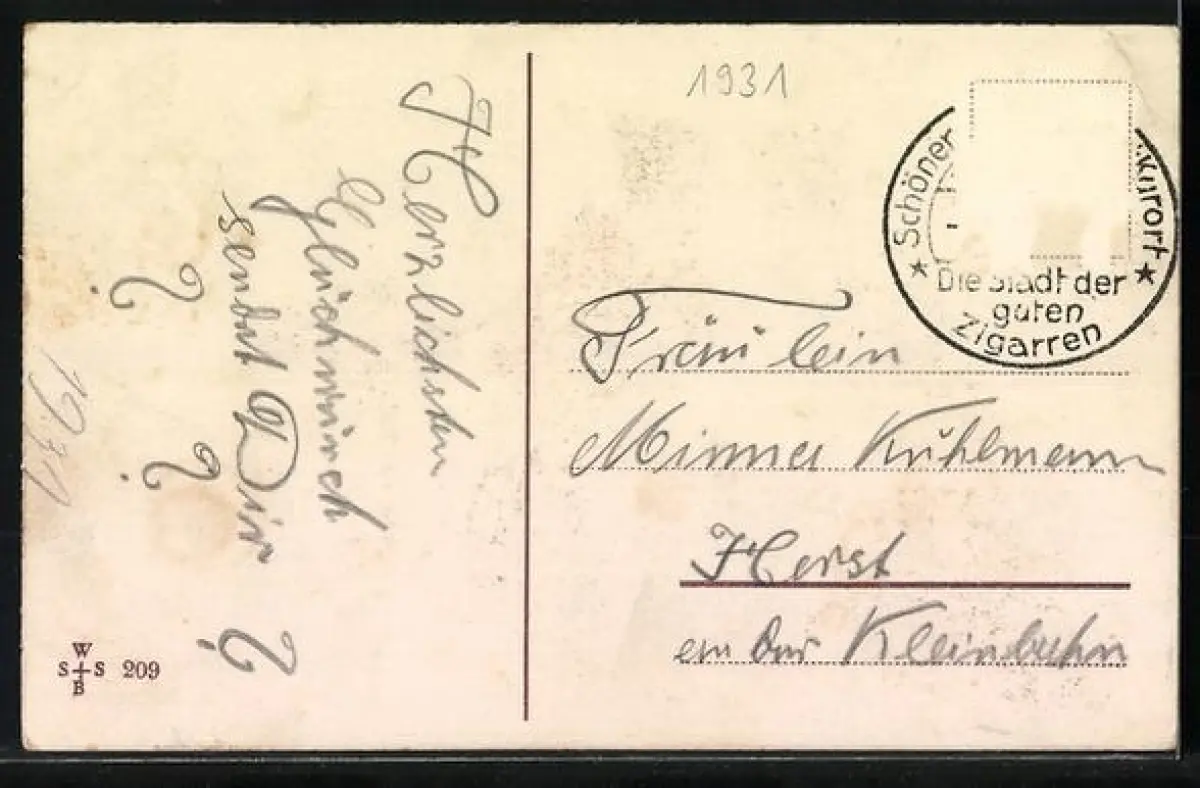 Herzlichsten
Glückwunsch
sendet Dir
? ? ?
1931
1931
★ Schöner
kurort ★
Die Stadt der
guten
Zigarren
Fräulein
Minna Kuhlmann
Horst
an der Kleinbahn
W
S S
B
209